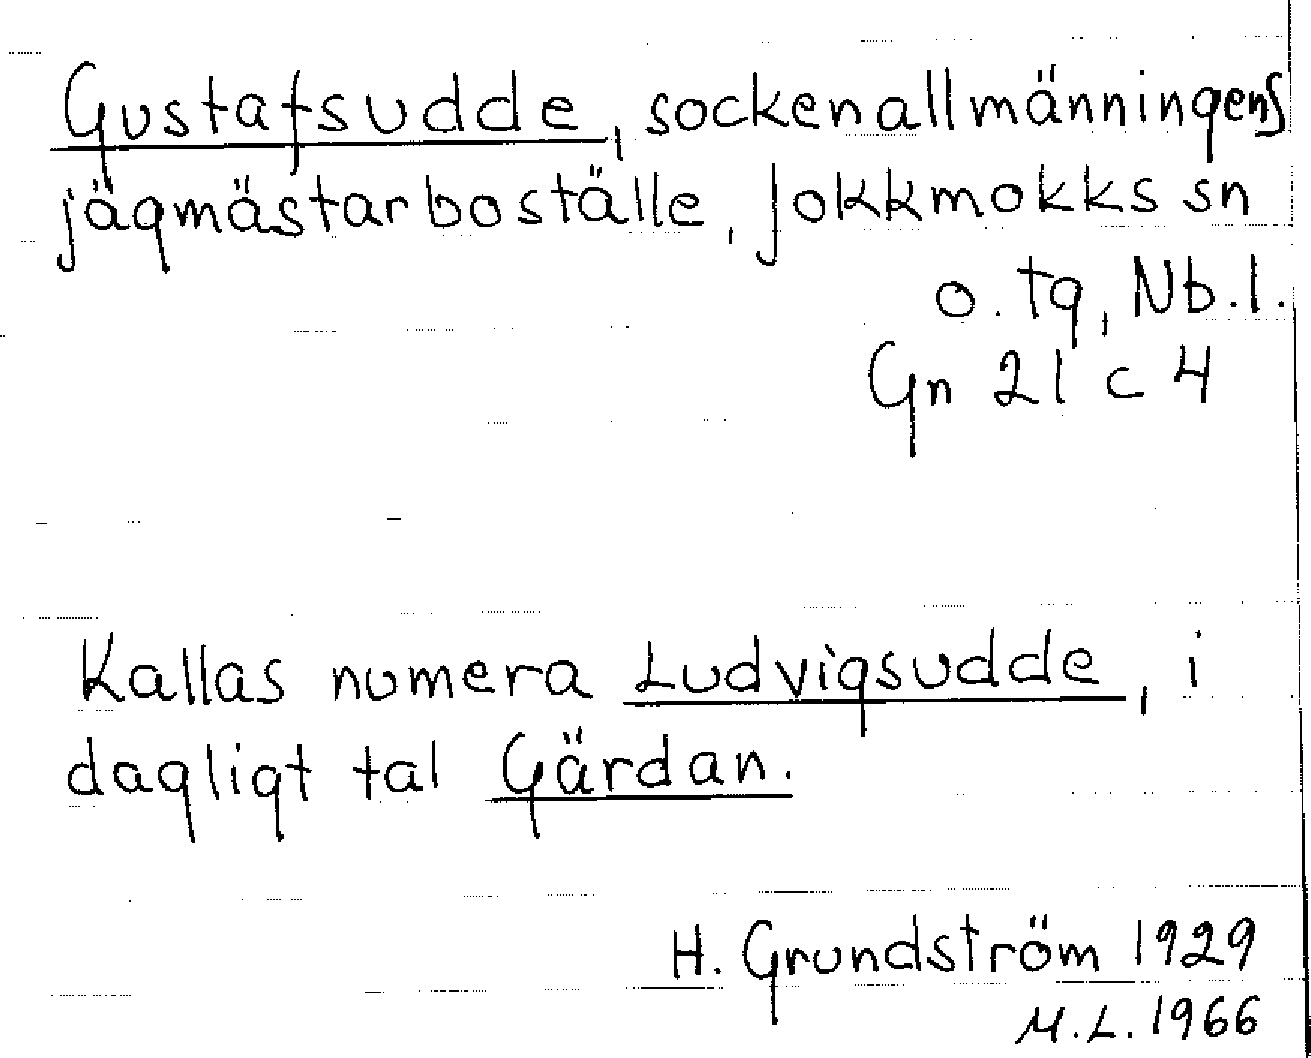 Gustafsudde, sockenallmänningens
jägmästarboställe, Jokkmokks sn
o. tg, Nb.l.
Gn 21 c 4
Kallas numera Ludvigsudde, i
dagligt tal Gärdan.
H. Grundström 1929
M.L. 1966